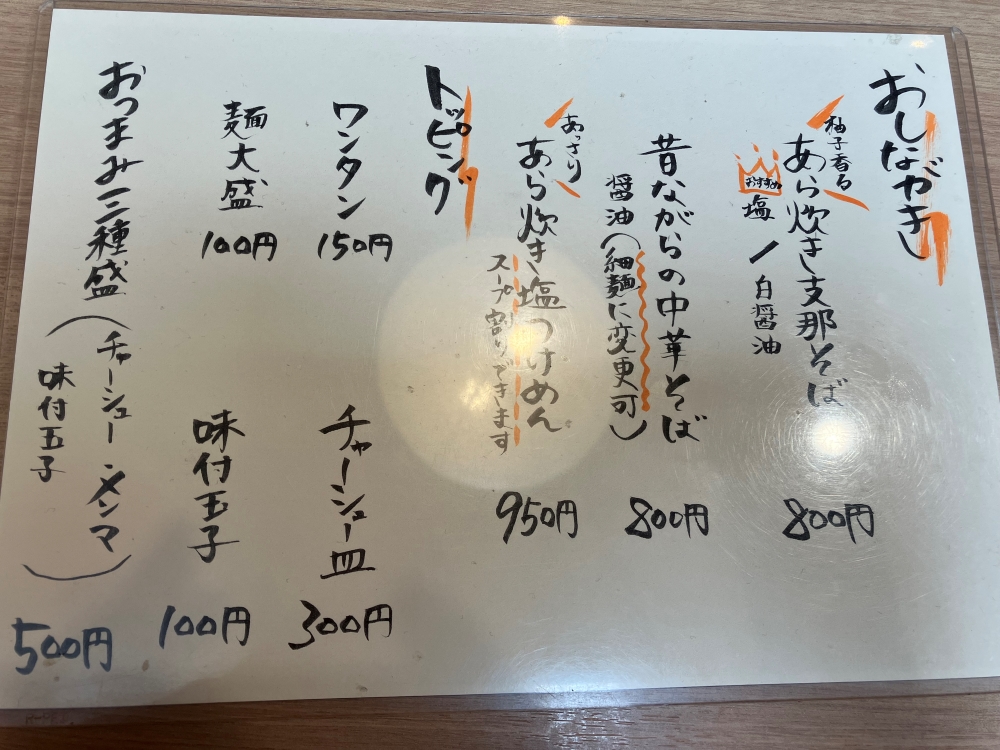 おしながき
柚子香る
あら炊き支那そば
おすすめ
塩／白醤油
800円
昔ながらの中華そば
醤油(細麺に変更可)
800円
あっさり
あら炊き塩つけめん
スープ割りできます
950円
トッピング
ワンタン
150円
チャーシュー皿
300円
麺大盛
100円
味付玉子
100円
おつまみ三種盛(チャーシュー メンマ
味付玉子)
500円